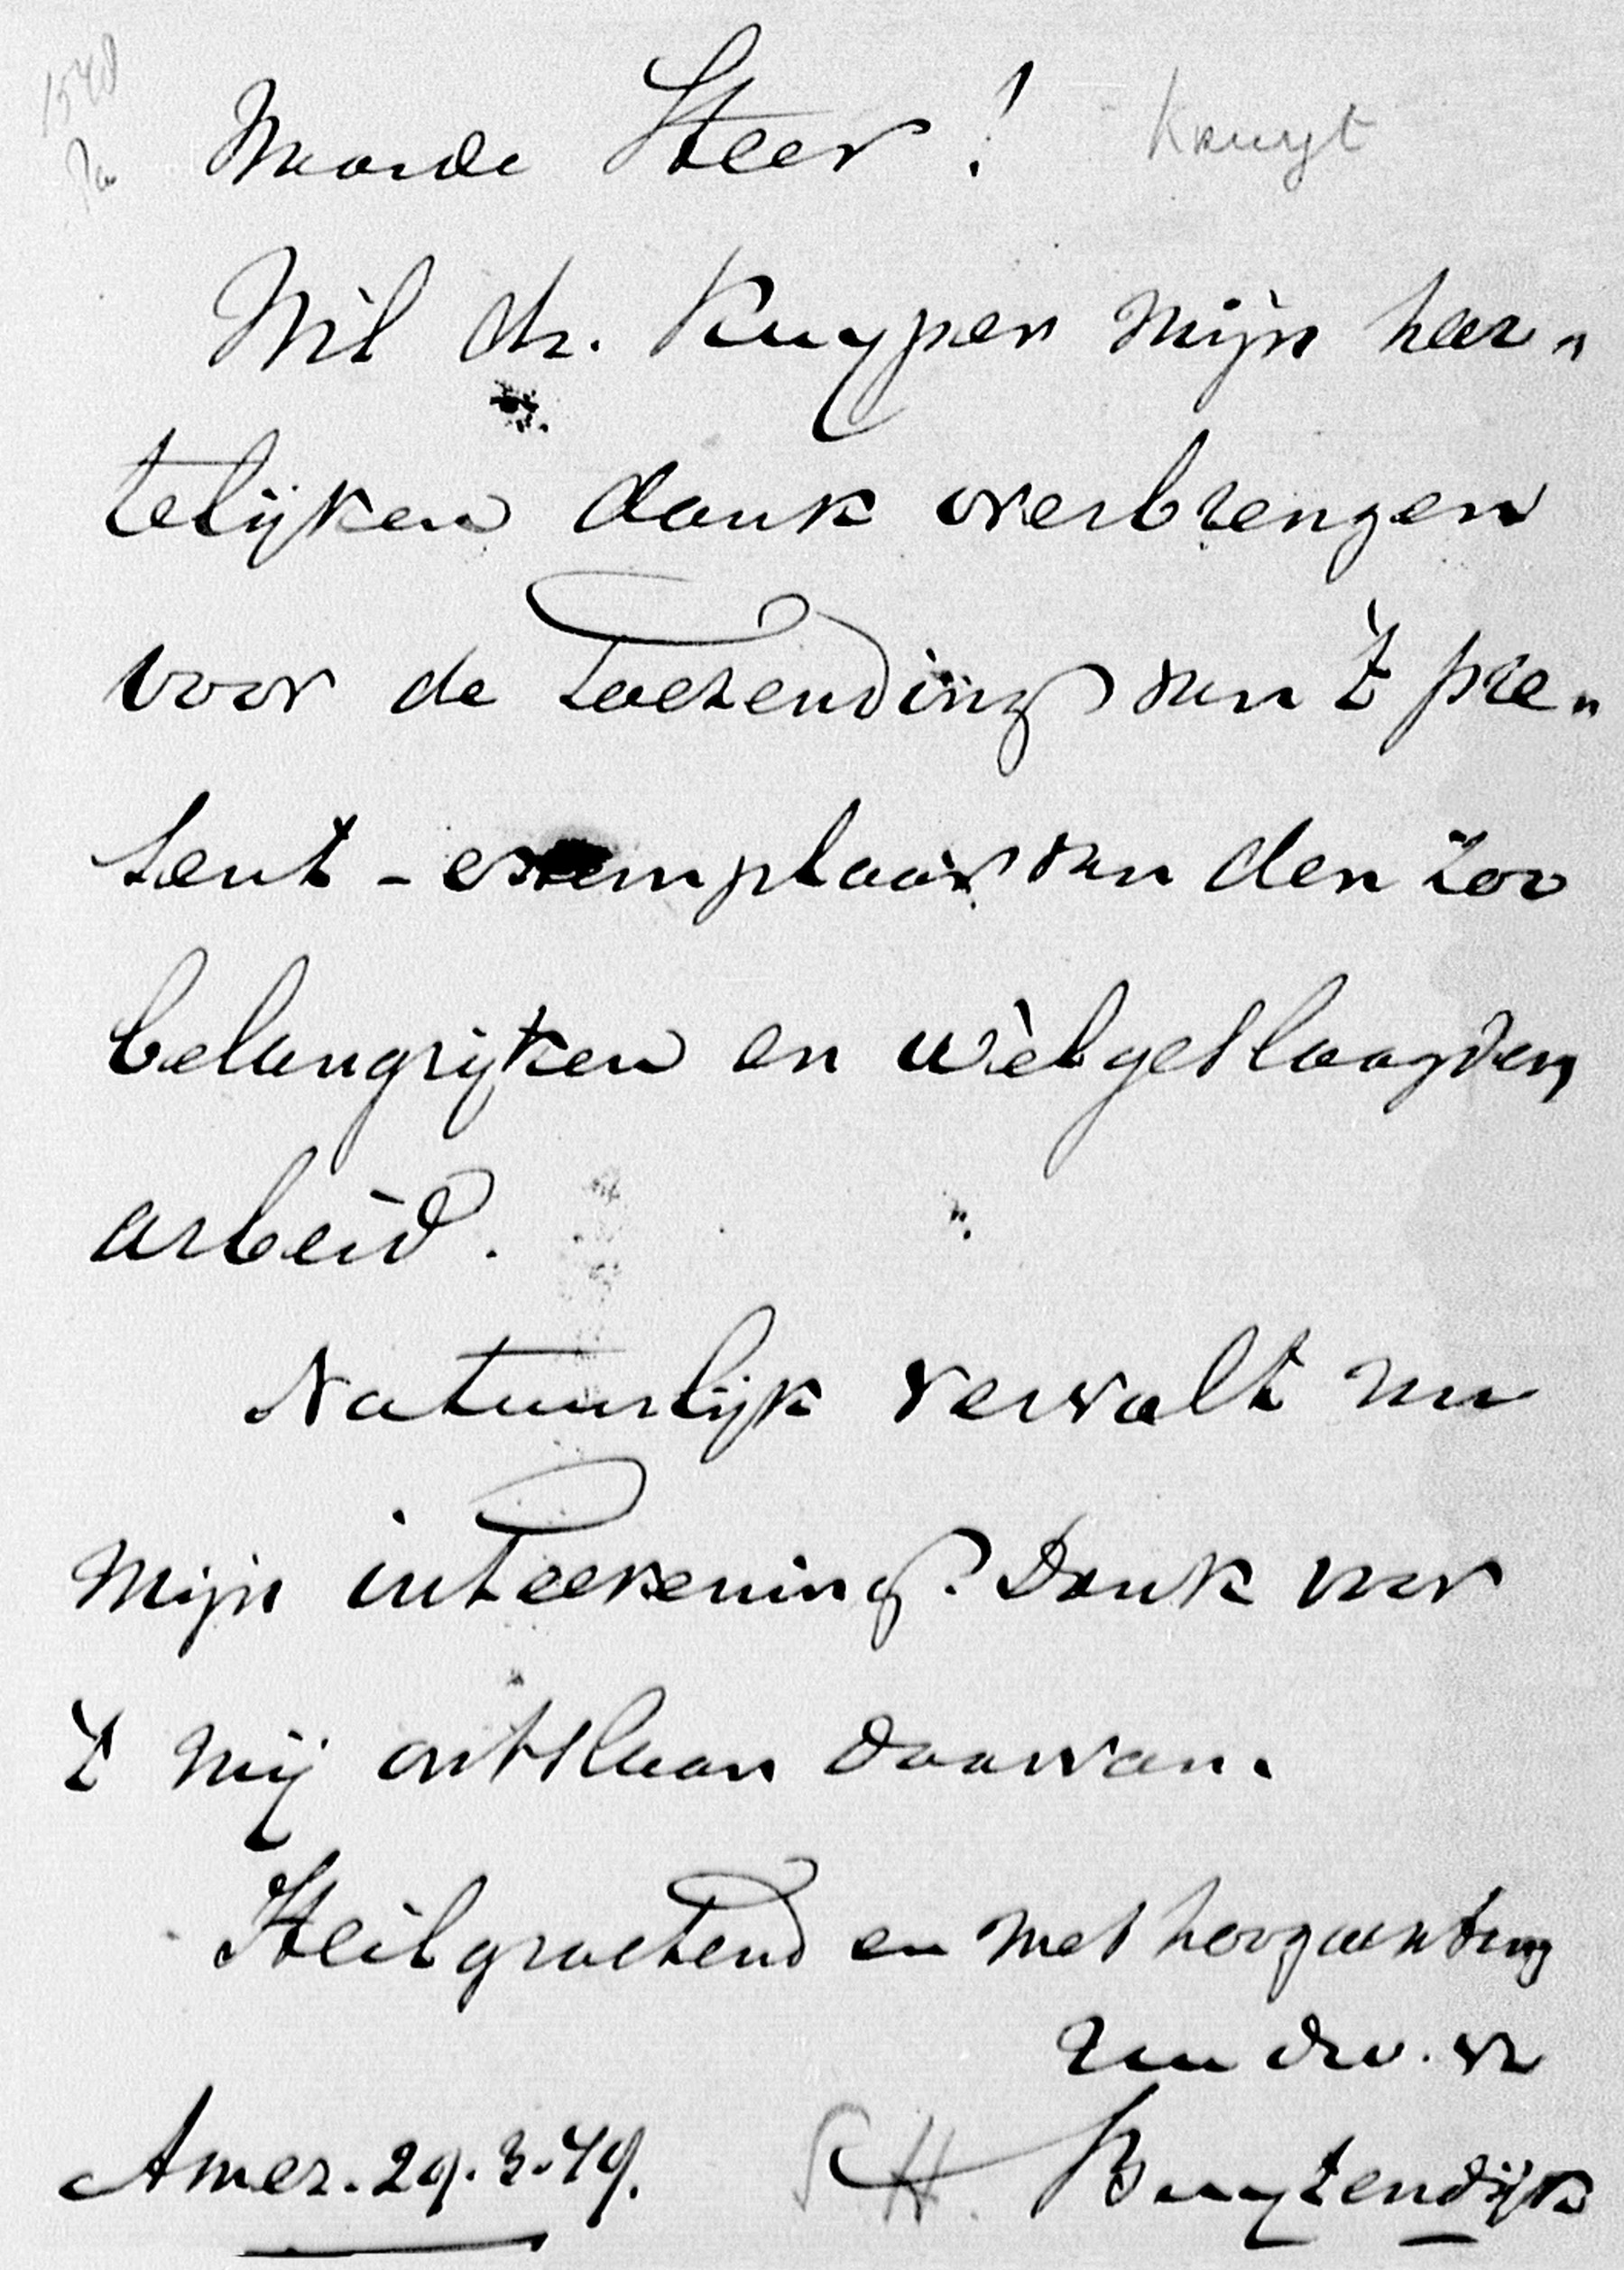 1548
Waarde Heer! Kruyt
Wil dr. Kuyper mijn har„
telijken dank overbrengen
voor de toezending van 't pre„
sent-exemplaar van den zoo
belangrijken en wèlgeslaagden
arbeid.
Natuurlijk vervalt nu
mijn inteekening. Dank voor
't mij ontslaan daarvan.
Heilgroetend en met hoogachting
Uw dw. dr
Amer. 29.3.79. SH. Buytendijk